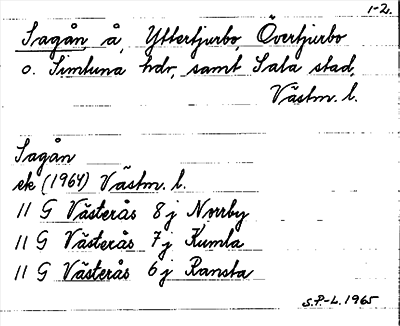 1-2.
Sagån å, Yttertjurbo, Övertjurbo
o. Simtuna hdr, samt Sala stad,
Västm. l.
Sagån
ek (1964) Västm. l.
11 G Västerås 8 j Norrby
11 G Västerås 7 j Kumla
11 G Västerås 6 j Ransta
S.P-L. 1965